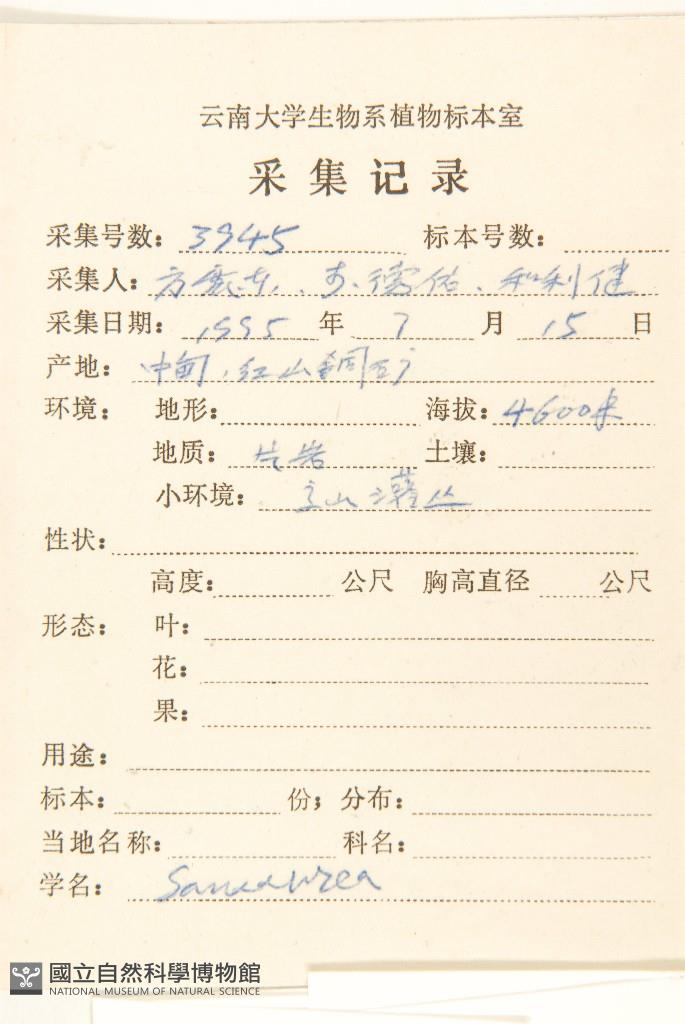 云南大学生物系植物标本室
采集记录
采集号数: 3945 标本号数:
采集人: 方震东、李德佑、和利健
采集日期: 1995 年 7 月 15 日
产地: 中甸、红山铜矿
环境: 地形: 海拔: 4600米
地质: 片岩 土壤:
小环境: 灌丛
性状:
高度: 公尺 胸高直径 公尺
形态: 叶:
花:
果:
用途:
标本: 份; 分布:
当地名称: 科名:
学名: Saussurea
國立自然科學博物館
NATIONAL MUSEUM OF NATURAL SCIENCE